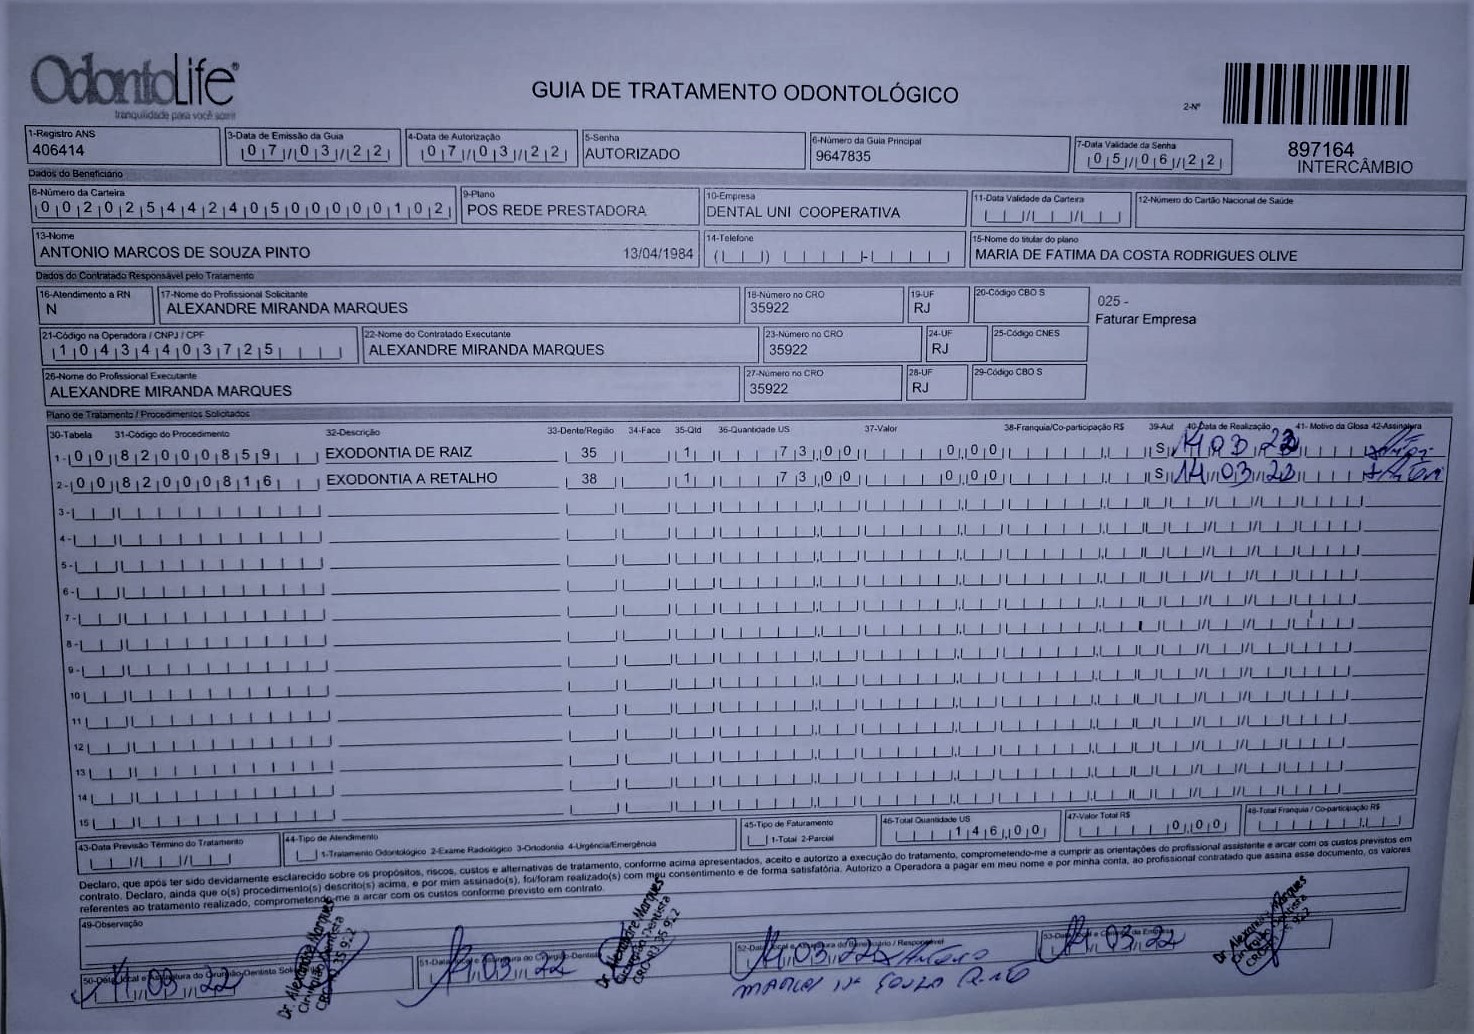 OdontoLife®
tranquilidade para você sorrir
GUIA DE TRATAMENTO ODONTOLÓGICO
2-Nº
897164
INTERCÂMBIO
1-Registro ANS 3-Data de Emissão da Guia 4-Data de Autorização 5-Senha 6-Número da Guia Principal 7-Data Validade da Senha
406414 07/03/22 07/03/22 AUTORIZADO 9647835 05/06/22
Dados do Beneficiário
8-Número da Carteira 9-Plano 10-Empresa 11-Data Validade da Carteira 12-Número do Cartão Nacional de Saúde
00202544240500000102 POS REDE PRESTADORA DENTAL UNI COOPERATIVA
13-Nome 14-Telefone 15-Nome do titular do plano
ANTONIO MARCOS DE SOUZA PINTO 13/04/1984 MARIA DE FATIMA DA COSTA RODRIGUES OLIVE
Dados do Contratado Responsável pelo Tratamento
16-Atendimento a RN 17-Nome do Profissional Solicitante 18-Número no CRO 19-UF 20-Código CBO S
N ALEXANDRE MIRANDA MARQUES 35922 RJ
025 -
Faturar Empresa
21-Código na Operadora / CNPJ / CPF 22-Nome do Contratado Executante 23-Número no CRO 24-UF 25-Código CNES
10434403725 ALEXANDRE MIRANDA MARQUES 35922 RJ
26-Nome do Profissional Executante 27-Número no CRO 28-UF 29-Código CBO S
ALEXANDRE MIRANDA MARQUES 35922 RJ
Plano de Tratamento / Procedimentos Solicitados
30-Tabela 31-Código do Procedimento 32-Descrição 33-Dente/Região 34-Face 35-Qtd 36-Quantidade US 37-Valor 38-Franquia/Co-participação R$ 39-Aut 40-Data de Realização 41- Motivo da Glosa 42-Assinatura
1- 00 82000859 EXODONTIA DE RAIZ 35 1 73,00 0,00 S 14 03 22
2- 00 82000816 EXODONTIA A RETALHO 38 1 73,00 0,00 S 14 03 22
3-
4-
5-
6-
7-
8-
9-
10
11
12
13
14
15
43-Data Previsão Término do Tratamento 44-Tipo de Atendimento 45-Tipo de Faturamento 46-Total Quantidade US 47-Valor Total R$ 48-Total Franquia / Co-participação R$
1-Tratamento Odontológico 2-Exame Radiológico 3-Ortodontia 4-Urgência/Emergência 1-Total 2-Parcial 146,00 0,00
Declaro, que após ter sido devidamente esclarecido sobre os propósitos, riscos, custos e alternativas de tratamento, conforme acima apresentados, aceito e autorizo a execução do tratamento, comprometendo-me a cumprir as orientações do profissional assistente e arcar com os custos previstos em
contrato. Declaro, ainda que o(s) procedimento(s) descrito(s) acima, e por mim assinado(s), foi/foram realizado(s) com meu consentimento e de forma satisfatória. Autorizo a Operadora a pagar em meu nome e por minha conta, ao profissional contratado que assina esse documento, os valores
referentes ao tratamento realizado, comprometendo-me a arcar com os custos conforme previsto em contrato.
49-Observação
50-Data, local e Assinatura do Cirurgião-Dentista 51-Data, local e Assinatura do Cirurgião-Dentista 52-Data, local e Assinatura do Beneficiário / Responsável 53-Data, local e Carimbo da Empresa
14 03 22 14 03 22 14 03 22 Antonio 14 03 22
Dr. Alexandre Marques
Cirurgião Dentista
CRO-RJ 35.922
Dr. Alexandre Marques
Cirurgião Dentista
CRO-RJ 35.922
Dr. Alexandre Marques
Cirurgião Dentista